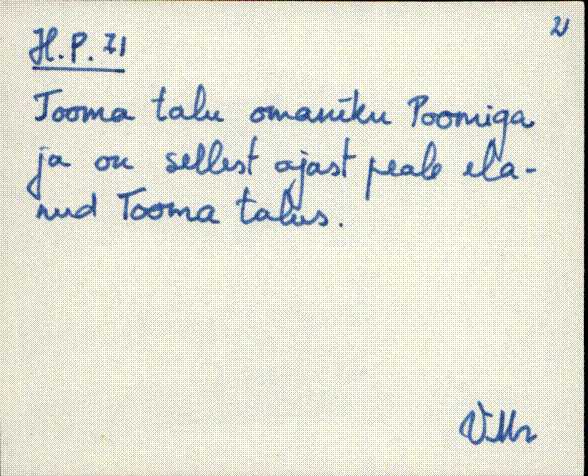 2
H.P. 71
Tooma talu omaniku Poomiga
ja on sellest ajast peale ela-
nud Tooma talus.